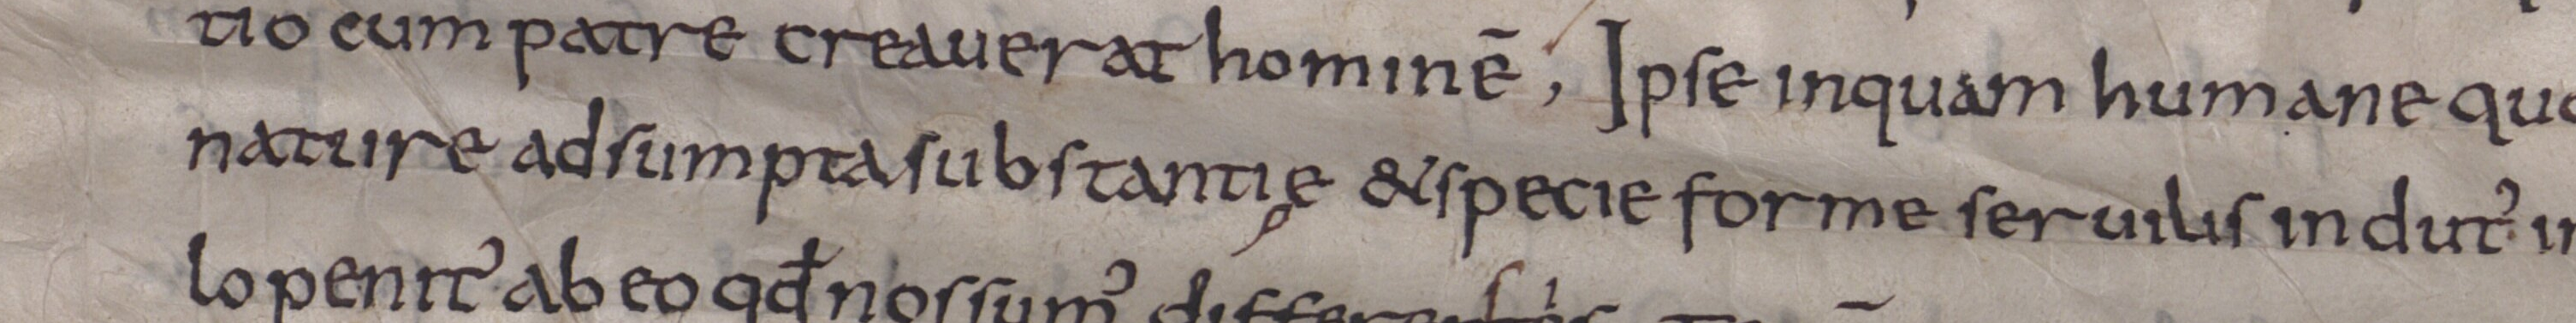 tio cum patre creauerat hominē, Ipse inquam humane
nature adsumpta substantię & specie forme seruilis indutʼ
lo penitʼ ab eo qđ nos sumʼ